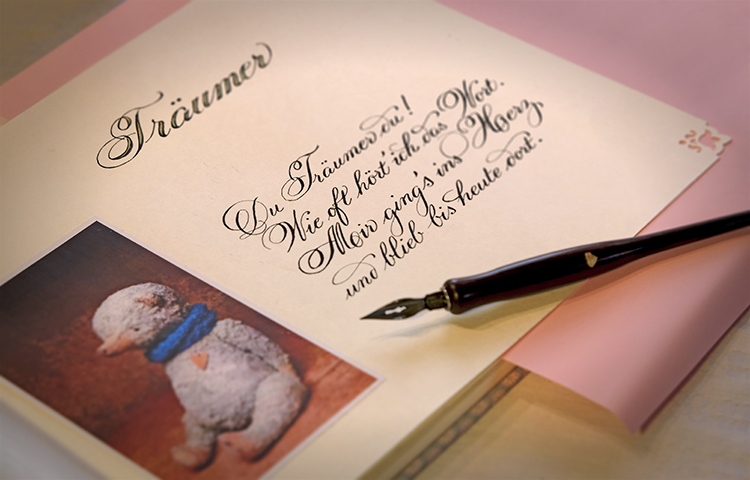 Träumer
Du Träumer du!
Wie oft hört' ich das Wort.
Mir ging's ins Herz,
und blieb bis heute dort.